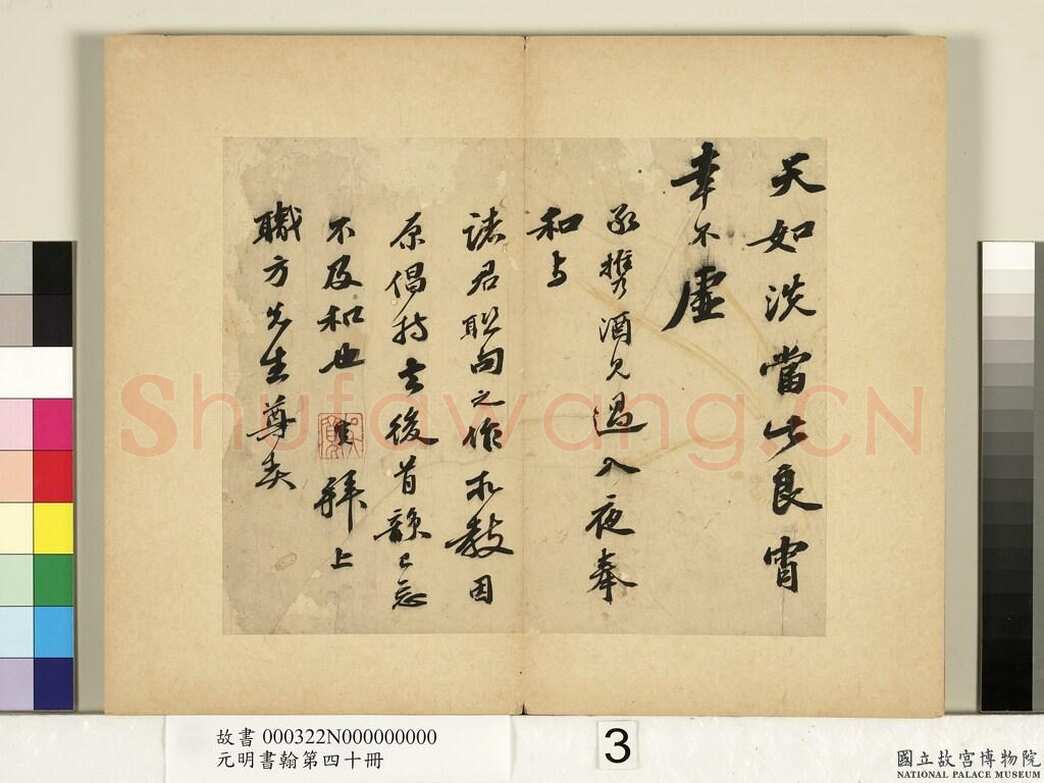 天如淡當此良宵
幸不虛
承攜酒見過入夜奉
和與
諸君聯句之作求教因
原倡持去後首韻已忘
不及和也 寬拜上
職方先生尊契
Shufawang.CN
故書 000322N000000000
元明書翰第四十冊
3
國立故宮博物院
NATIONAL PALACE MUSEUM